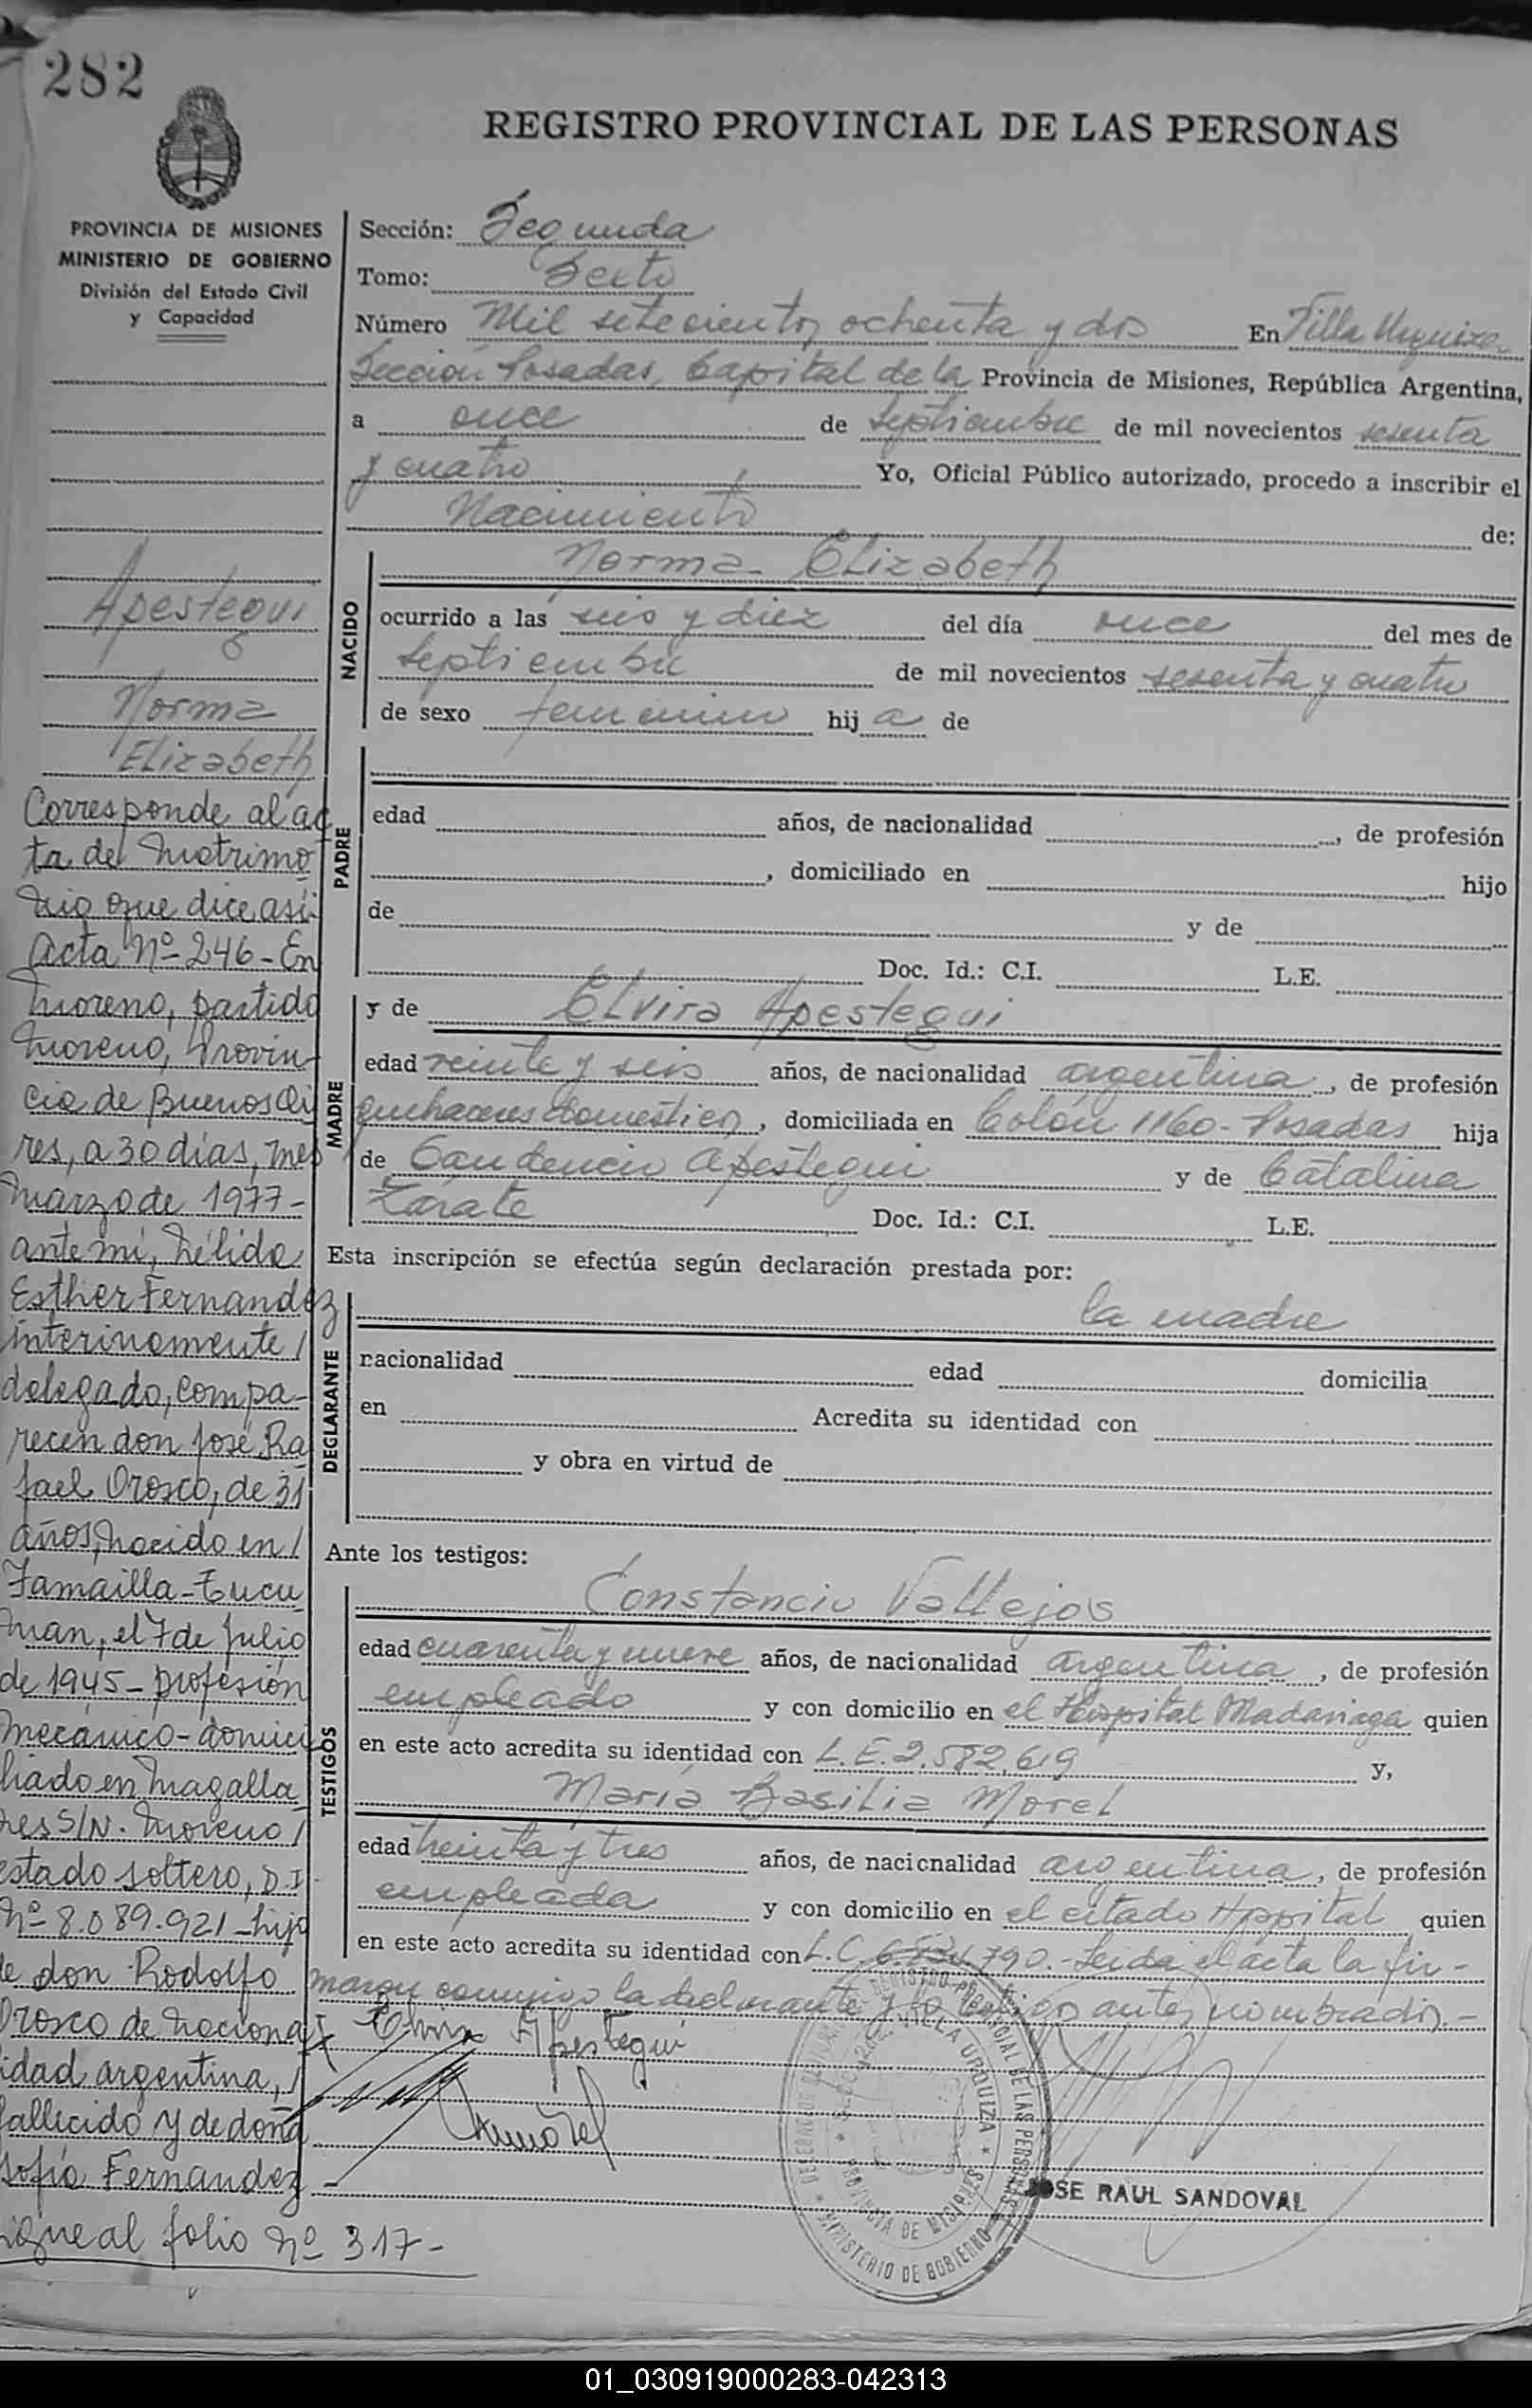 282
REGISTRO PROVINCIAL DE LAS PERSONAS
PROVINCIA DE MISIONES
MINISTERIO DE GOBIERNO
División del Estado Civil
y Capacidad
Apestegui
Norma
Elizabeth
Corresponde al ac
ta de Matrimo
nio que dice así:
Acta Nº 246 - En
Moreno, partido
Moreno, Provin
cia de Buenos Ai
res, a 30 días, mes
Marzo de 1977 -
ante mí, Nélida
Esther Fernandez
interinamente /
delegado, compa-
recen don José Ra
fael Orosco, de 31
años, nacido en /
Famailla - Tucu
man, el 7 de Julio
de 1945 - profesión
mecánico - domici
liado en Magalla
nes S/N. Moreno /
estado soltero, D.I.
Nº 8.089.921 - hijo
de don Rodolfo
Orosco de naciona
lidad argentina, /
fallecido y de doña
Sofía Fernandez -
sigue al folio Nº 317 -
Sección: Segunda
Tomo: Sexto
Número Mil setecientos ochenta y dos En Villa Urquiza
Sección Posadas, Capital de la Provincia de Misiones, República Argentina,
a once de septiembre de mil novecientos sesenta
y cuatro Yo, Oficial Público autorizado, procedo a inscribir el
Nacimiento de:
NACIDO
Norma Elizabeth
ocurrido a las seis y diez del día once del mes de
septiembre de mil novecientos sesenta y cuatro
de sexo femenino hija de
PADRE
edad años, de nacionalidad , de profesión
, domiciliado en hijo
de y de
Doc. Id.: C.I. L.E.
MADRE
y de Elvira Apestegui
edad veinte y seis años, de nacionalidad argentina, de profesión
quehaceres domésticos, domiciliada en Colón 1160 - Posadas hija
de Gaudencio Apestegui y de Catalina
Zárate Doc. Id.: C.I. L.E.
Esta inscripción se efectúa según declaración prestada por:
DECLARANTE
la madre
nacionalidad edad domicilia
en Acredita su identidad con
y obra en virtud de
Ante los testigos:
TESTIGOS
Constancio Vallejos
edad cuarenta y nueve años, de nacionalidad argentina, de profesión
empleado y con domicilio en el Hospital Madariaga quien
en este acto acredita su identidad con L.E. 2.582.619 y,
María Basilia Morel
edad treinta y tres años, de nacionalidad argentina, de profesión
empleada y con domicilio en el citado Hospital quien
en este acto acredita su identidad con L.C. 790.- Leída el acta la fir-
man conmigo la declarante y los testigos antes nombrados.-
Elvira Apestegui
REGISTRO PROVINCIAL DE LAS PERSONAS
VILLA URQUIZA
PROVINCIA DE MISIONES
MINISTERIO DE GOBIERNO
JOSE RAUL SANDOVAL
01_030919000283-042313